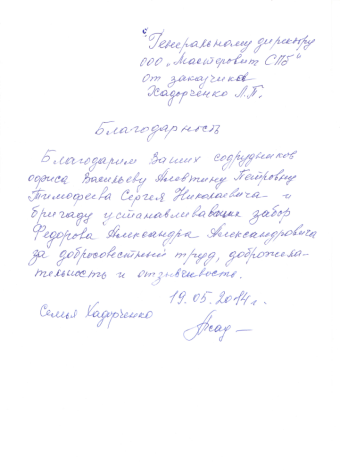 Генеральному директору
ООО „Мастеровит СПб“
от заказчика
Хадорченко Л.П.
Благодарность
Благодарим Ваших сотрудников
офиса Васильеву Алевтину Петровну
Тимофеева Сергея Николаевича и
бригаду устанавливавших забор
Федорова Александра Александровича
за добросовестный труд, доброжела-
тельность и отзывчивость.
19.05.2014 г.
Семья Хадорченко